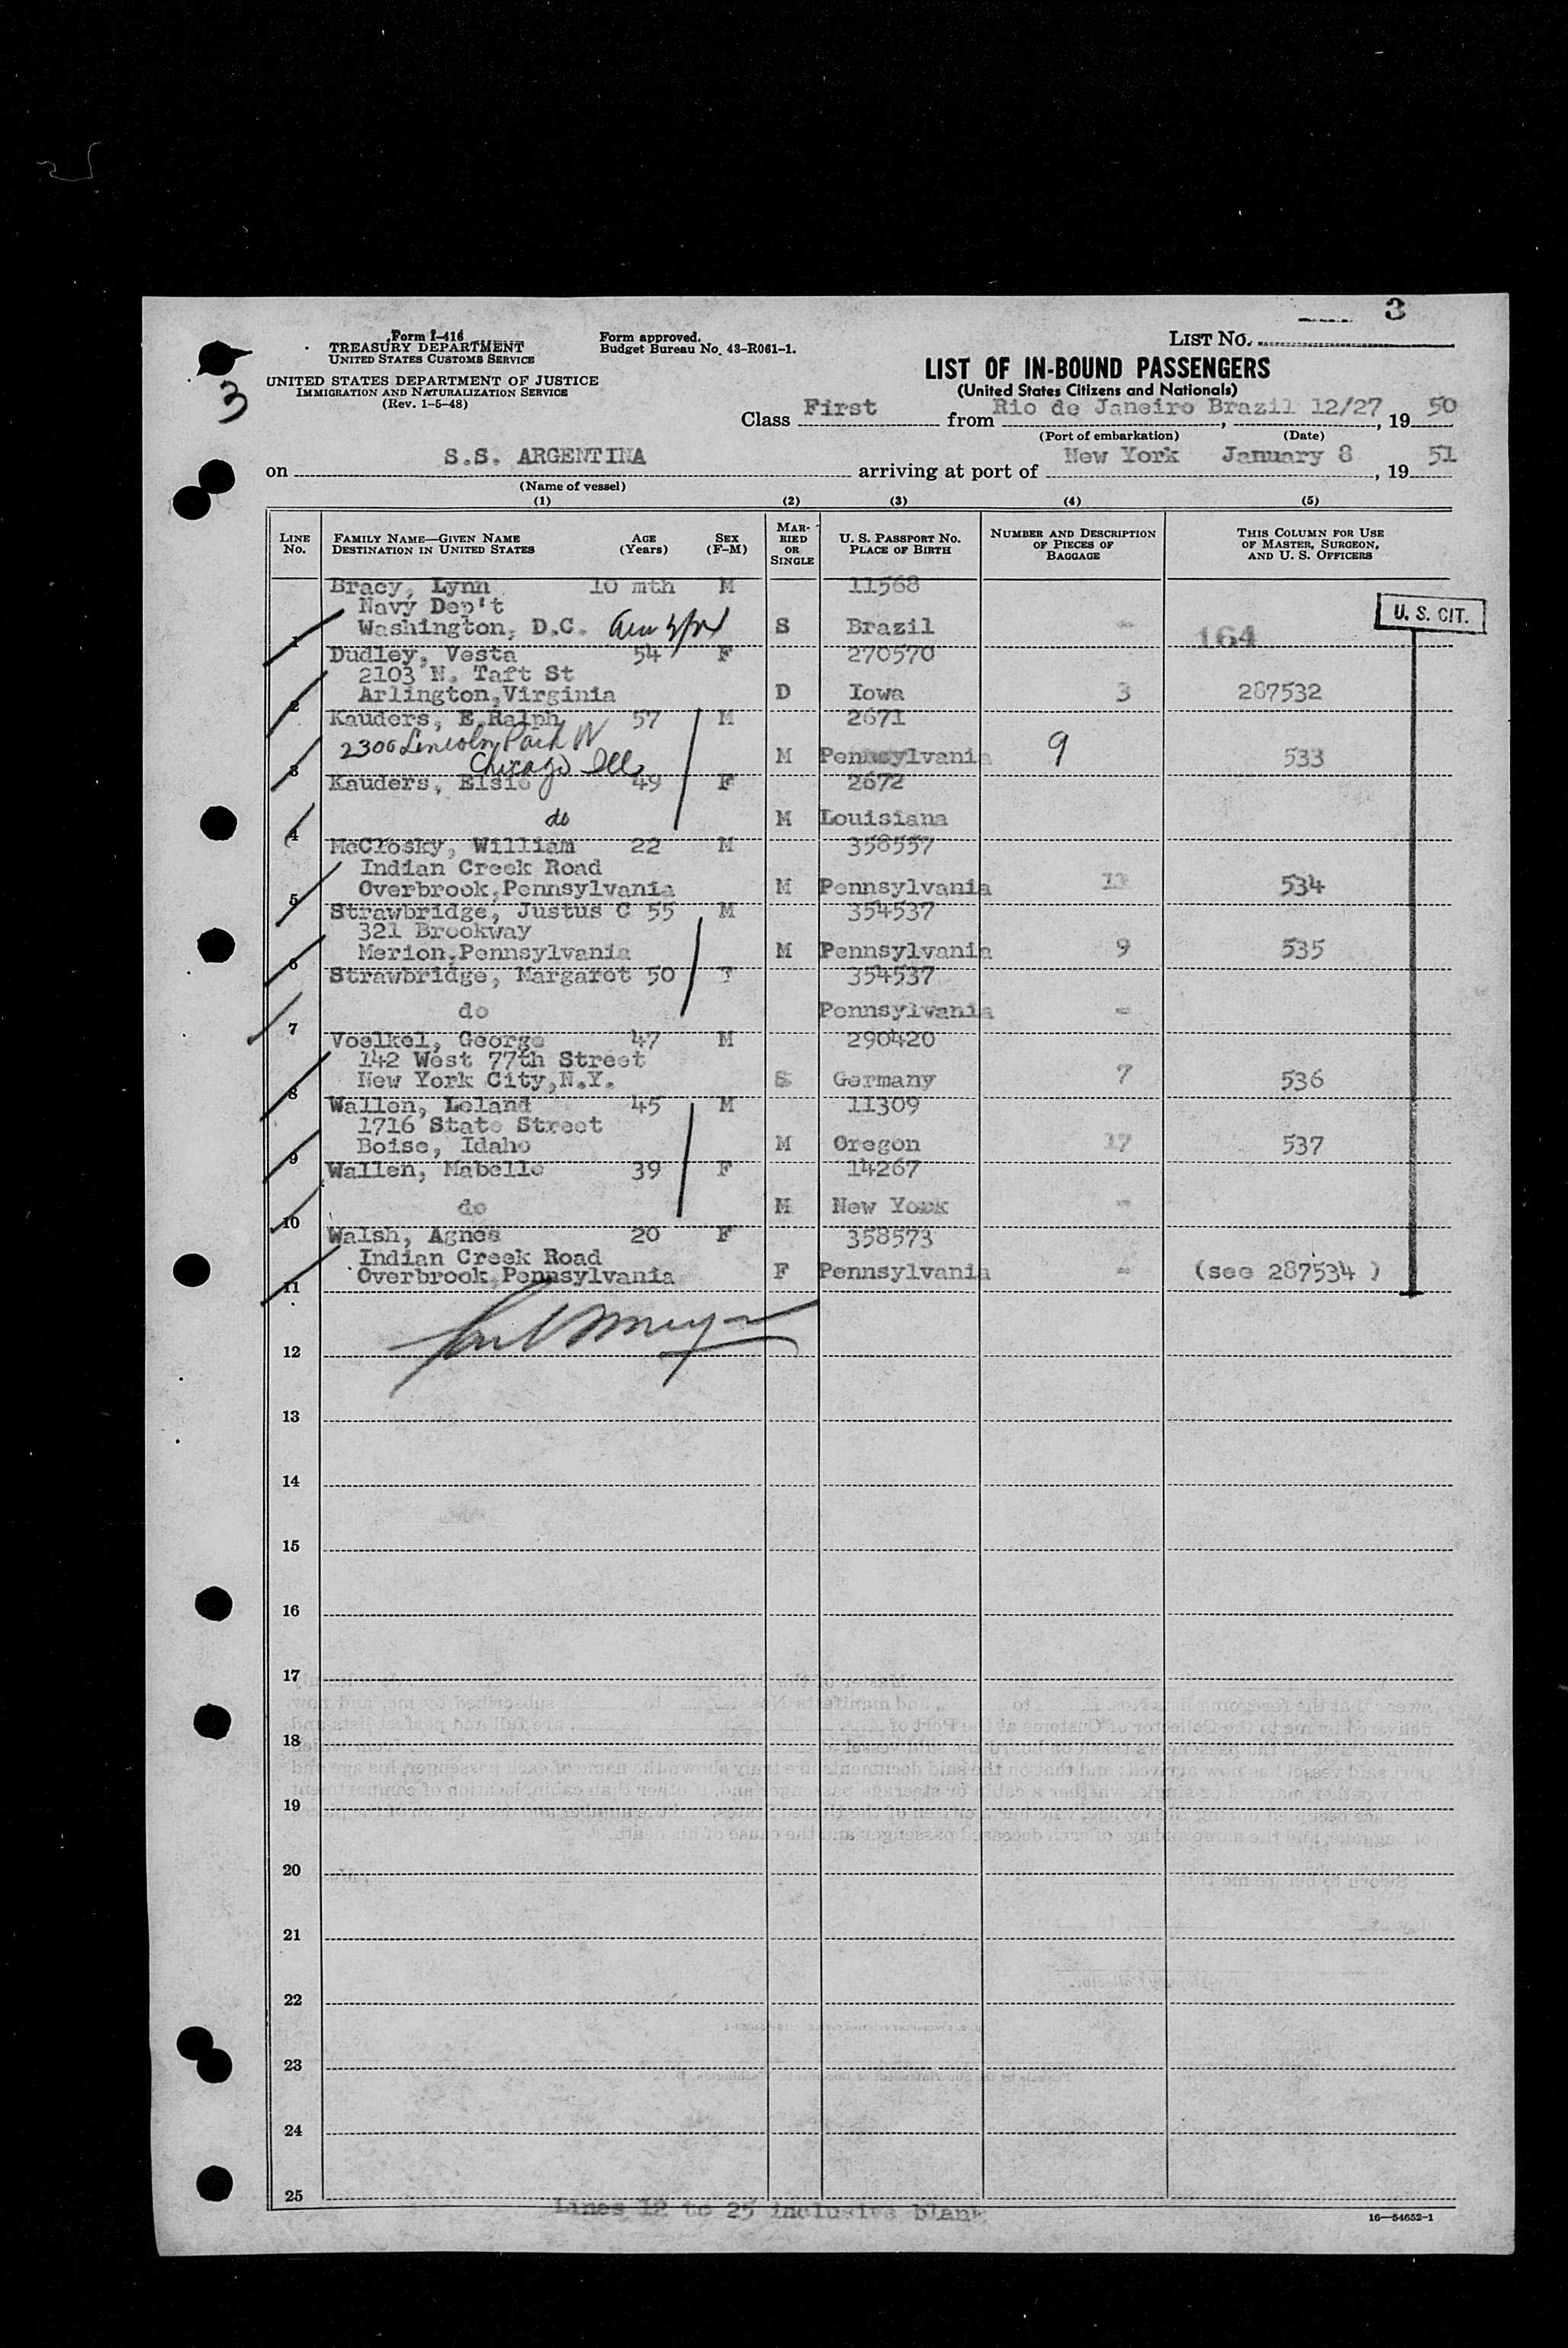 3
Form I-416
TREASURY DEPARTMENT
UNITED STATES CUSTOMS SERVICE
Form approved.
Budget Bureau No. 43-R061-1.
LIST NO.
3
UNITED STATES DEPARTMENT OF JUSTICE
IMMIGRATION AND NATURALIZATION SERVICE
(Rev. 1-5-48)
LIST OF IN-BOUND PASSENGERS
(United States Citizens and Nationals)
Class First from Rio de Janeiro Brazil 12/27, 19 50
(Port of embarkation) (Date)
on S.S. ARGENTINA arriving at port of New York January 8, 19 51
(Name of vessel)
(1) (2) (3) (4) (5)
LINE NO. FAMILY NAME—GIVEN NAME DESTINATION IN UNITED STATES AGE (Years) SEX (F-M) MARRIED OR SINGLE U. S. PASSPORT NO. PLACE OF BIRTH NUMBER AND DESCRIPTION OF PIECES OF BAGGAGE THIS COLUMN FOR USE OF MASTER, SURGEON, AND U. S. OFFICERS
Bracy, Lynn 10 mth M 11568
Navy Dep't
U. S. CIT.
1 Washington, D.C. S Brazil - 164
Dudley, Vesta 54 F 270570
2103 N. Taft St
2 Arlington,Virginia D Iowa 3 287532
Kauders, E.Ralph 57 M 2671
2300 Lincoln Park W
3 Chicago Ill M Pennsylvania 9 533
Kauders, Elsie 49 F 2672
4 do M Louisiana
McClosky, William 22 M 358557
Indian Creek Road
5 Overbrook,Pennsylvania M Pennsylvania 11 534
Strawbridge, Justus C 55 M 354537
321 Brookway
6 Merion,Pennsylvania M Pennsylvania 9 535
Strawbridge, Margaret 50 F 354537
7 do Pennsylvania -
Voelkel, George 47 M 290420
142 West 77th Street
8 New York City,N.Y. S Germany 7 536
Wallen, Leland 45 M 11309
1716 State Street
9 Boise, Idaho M Oregon 17 537
Wallen, Mabelle 39 F 14267
10 do M New York -
Walsh, Agnes 20 F 358573
Indian Creek Road
11 Overbrook,Pennsylvania F Pennsylvania - (see 287534 )
12
13
14
15
16
17
18
19
20
21
22
23
24
25
Lines 12 to 25 inclusive blank
16—54652-1